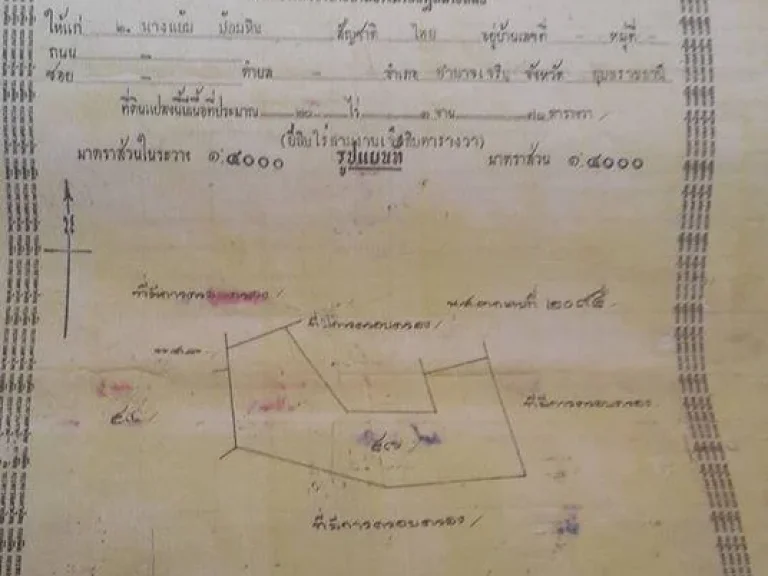 ให้แก่ ๒. นางแย้ม ป้อมหิน สัญชาติ ไทย อยู่บ้านเลขที่ - หมู่ที่ -
ถนน -
ซอย - ตำบล - อำเภอ อำนาจเจริญ จังหวัด อุบลราชธานี
ที่ดินแปลงนี้มีเนื้อที่ประมาณ ๒๐ ไร่ ๓ งาน ๗๐ ตารางวา
(ยี่สิบไร่สามงานเจ็ดสิบตารางวา)
มาตราส่วนในระวาง ๑:๕๐๐๐ รูปแผนที่ มาตราส่วน ๑:๔๐๐๐
น
ที่มีการครอบครอง
ที่มีการครอบครอง
ที่มีการครอบครอง
ที่มีการครอบครอง